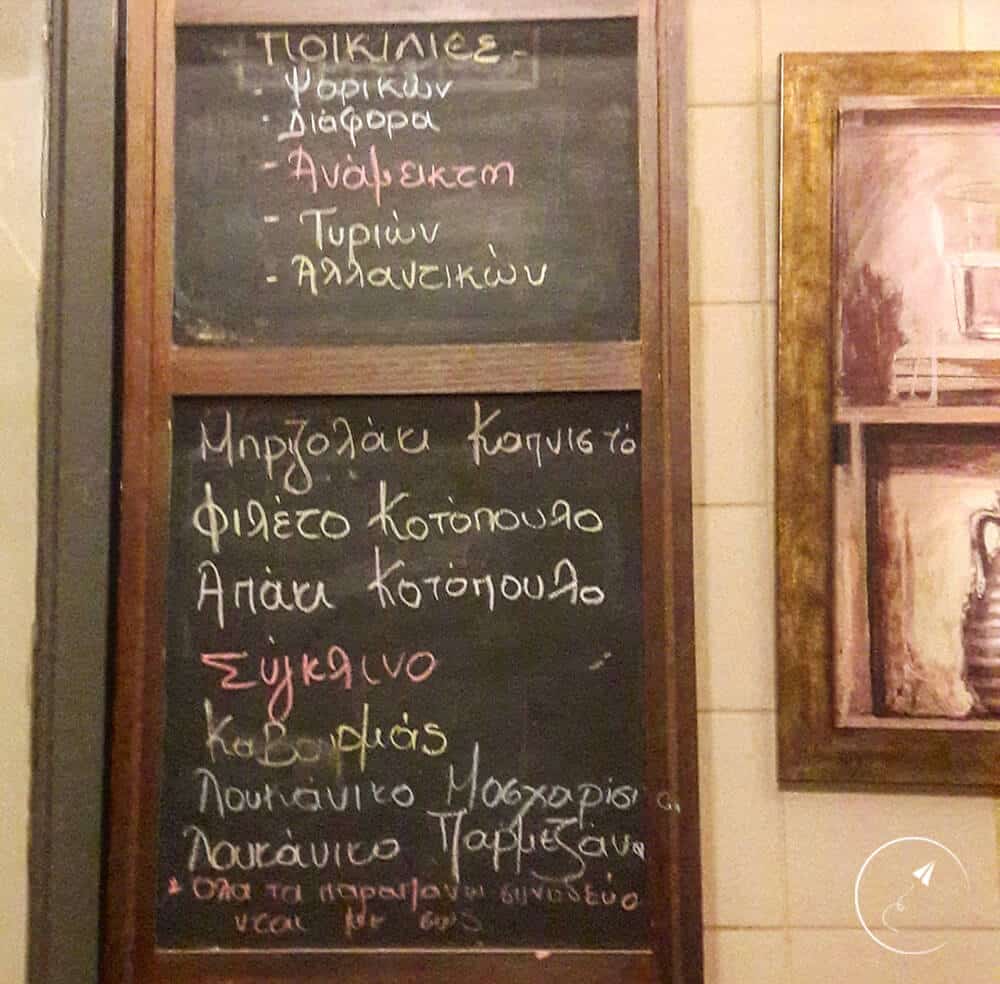 ΠΟΙΚΙΛΙΕΣ -
- Ψαρικών
· Διάφορα
- Ανάμεικτη
- Τυριών
- Αλλαντικών
Μπριζολάκι Καπνιστό
Φιλέτο Κοτόπουλο
Απάκι Κοτόπουλο
Σύγκλινο
Καβουρμάς
Λουκάνικο Μοσχαρίσι
Λουκάνικο Παρμεζάνα
* Όλα τα παραπάνω συνοδεύο
νται με